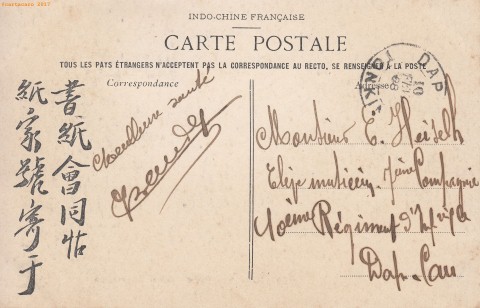 INDO-CHINE FRANÇAISE
CARTE POSTALE
TOUS LES PAYS ÉTRANGERS N'ACCEPTENT PAS LA CORRESPONDANCE AU RECTO, SE RENSEIGNER A LA POSTE
Correspondance
Adresse
DAP
TONKIN
Meilleure santé
書紙會同帖
紙家號寄于
Monsieur E.
Elève musicien Compagnie
10ème Régiment d'
Dap-Cau